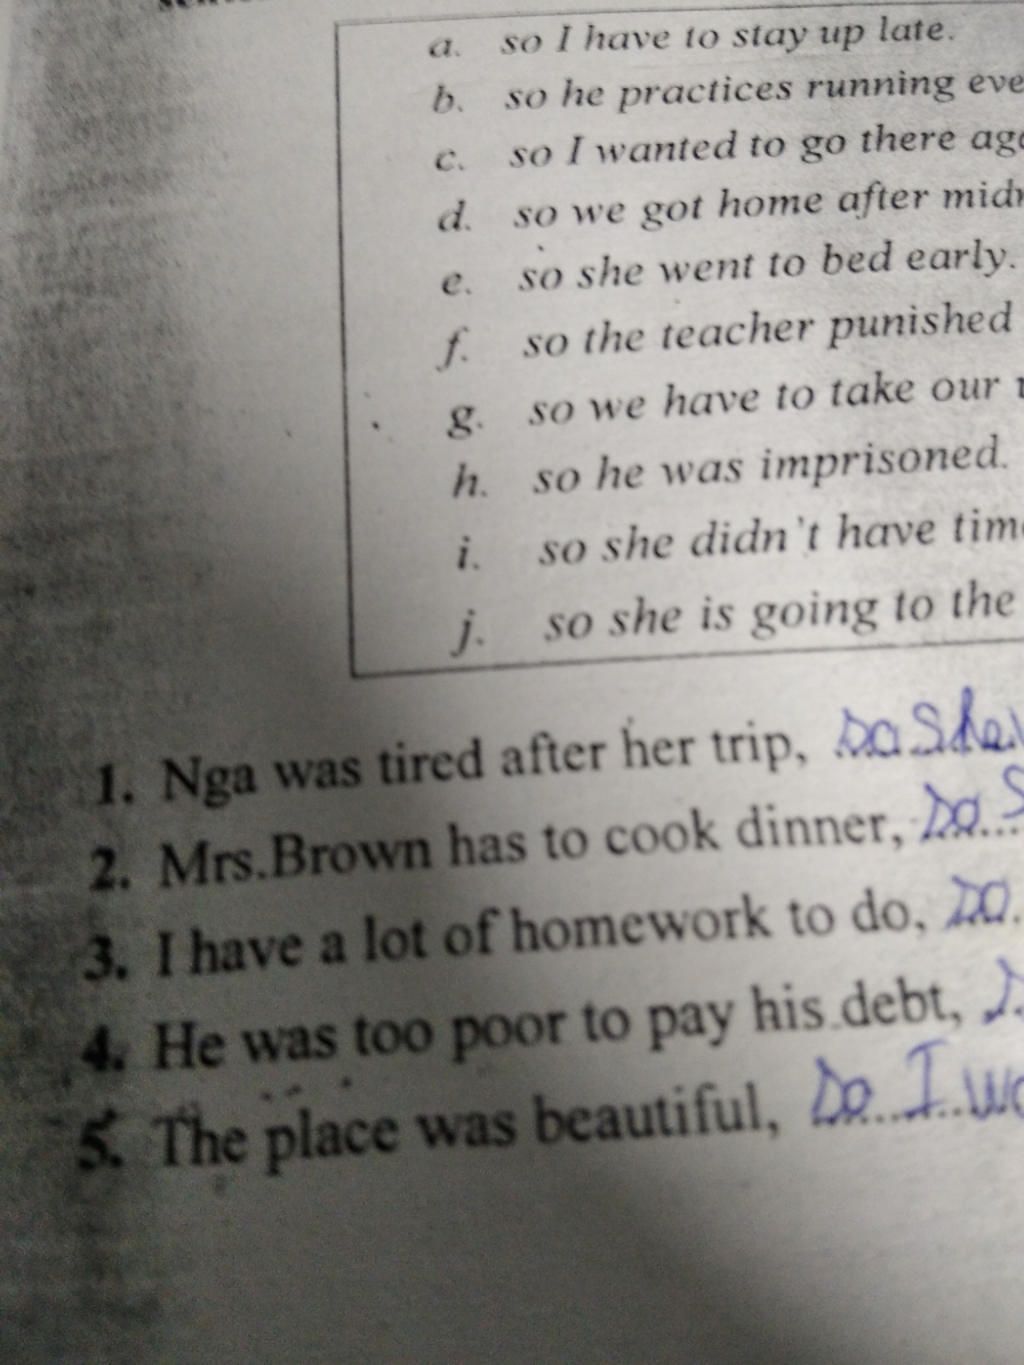 a. so I have to stay up late.
b. so he practices running
c. so I wanted to go there
d. so we got home after
e. so she went to bed early.
f. so the teacher punished
g. so we have to take our
h. so he was imprisoned.
i. so she didn't have
j. so she is going to the
1. Nga was tired after her trip, So She
2. Mrs.Brown has to cook dinner, So
3. I have a lot of homework to do, So
4. He was too poor to pay his debt,
5. The place was beautiful, So I